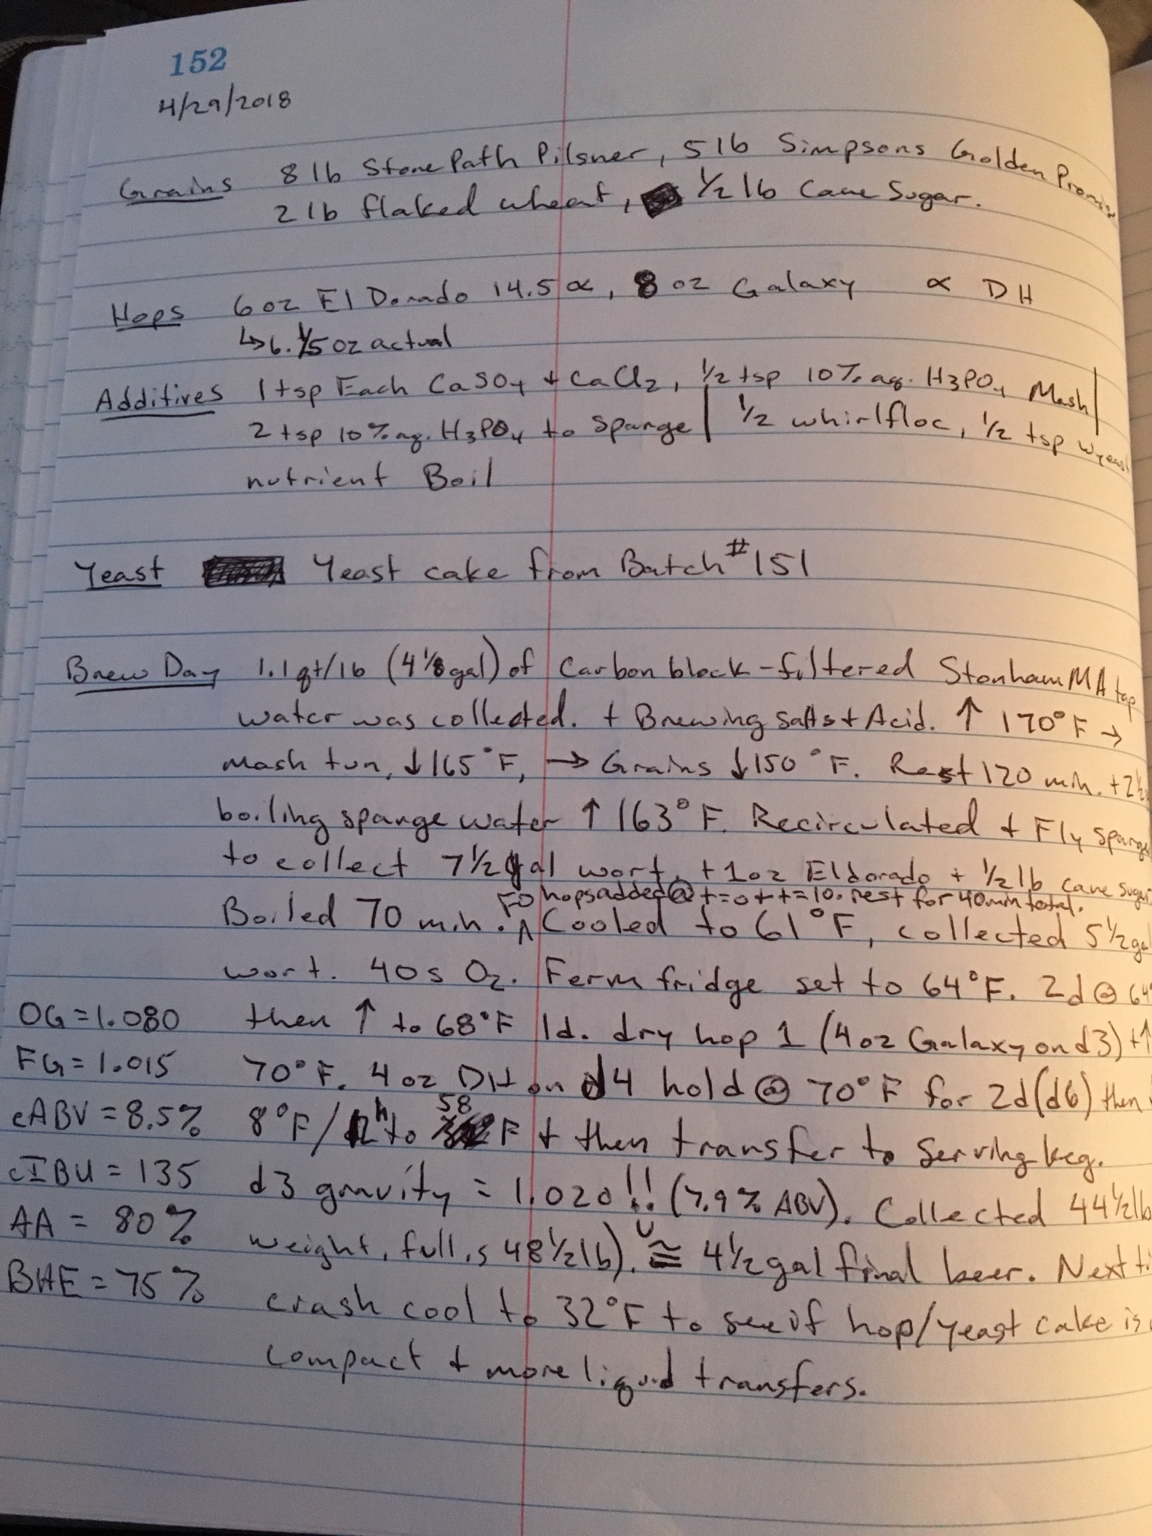 152
4/29/2018
Grains 8 lb Stone Path Pilsner, 5 lb Simpsons Golden Promise
2 lb flaked wheat, 1/2 lb Cane Sugar.
Hops 6 oz El Dorado 14.5 ∝, 8 oz Galaxy ∝ DH
↳ 6. 1/5 oz actual
Additives 1 tsp Each CaSO4 + CaCl2, 1/2 tsp 10% aq. H3PO4 Mash |
2 tsp 10% aq. H3PO4 to sparge | 1/2 whirlfloc, 1/2 tsp wyeast
nutrient Boil
Yeast Yeast cake from Batch #151
Brew Day 1.1 qt/lb (4 1/8 gal) of carbon block-filtered Stonham MA tap
water was collected. + Brewing salts + Acid. ↑ 170°F →
mash tun, ↓165°F, → Grains ↓150°F. Rest 120 min. +2 1/2
boiling sparge water ↑ 163°F. Recirculated + Fly sparge
to collect 7 1/2 gal wort, +1 oz Eldorado + 1/2 lb cane sugar
FO hops added @ t=0 + t=10. rest for 40 min total.
Boiled 70 min. ^ Cooled to 61°F, collected 5 1/2 gal
wort. 40s O2. Ferm fridge set to 64°F. 2d @ 64°
OG = 1.080 then ↑ to 68°F 1d. dry hop 1 (4 oz Galaxy on d3) + ↑
FG = 1.015 70°F. 4 oz DH on d4 hold @ 70°F for 2d (d6) then
cABV = 8.5% 8°F/h to 58 F + then transfer to serving keg.
cIBU = 135 d3 gravity = 1.020!! (7.9% ABV). Collected 44 1/2 lb
AA = 80% weight, full is 48 1/2 lb). ≅ 4 1/2 gal final beer. Next
BHE = 75% crash cool to 32°F to see if hop/yeast cake is
compact + more liquid transfers.